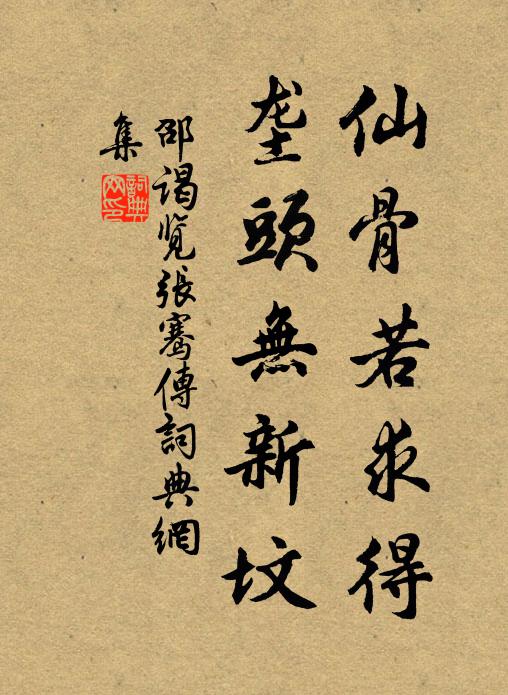 仙骨若求得
垄頭無新坟
邵谒览張騫傳詞典網
集
詞典